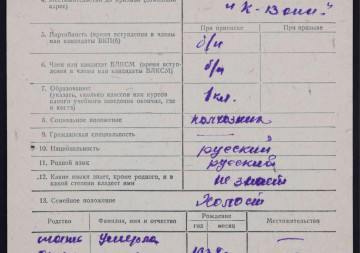 адрес)
"К-Воли."
При приписке При призыве
5. Партийность (время вступления в члены
или кандидаты ВКП(б)
б/п
6. Член или кандидат ВЛКСМ (время вступ-
ления в члены или кандидаты ВЛКСМ)
б/п
7. Образование:
(указать, сколько классов или курсов
какого учебного заведения окончил, где
и когда)
1 кл.
8. Социальное положение колхозник
9. Гражданская специальность —
10. Национальность русский
11. Родной язык русский
12. Какие языки знает, кроме родного, и в
какой степени владеет ими
не знает
13. Семейное положение Холост
Родство Фамилия, имя и отчество Рождение Местожительство
год месяц
мать умерла — — —